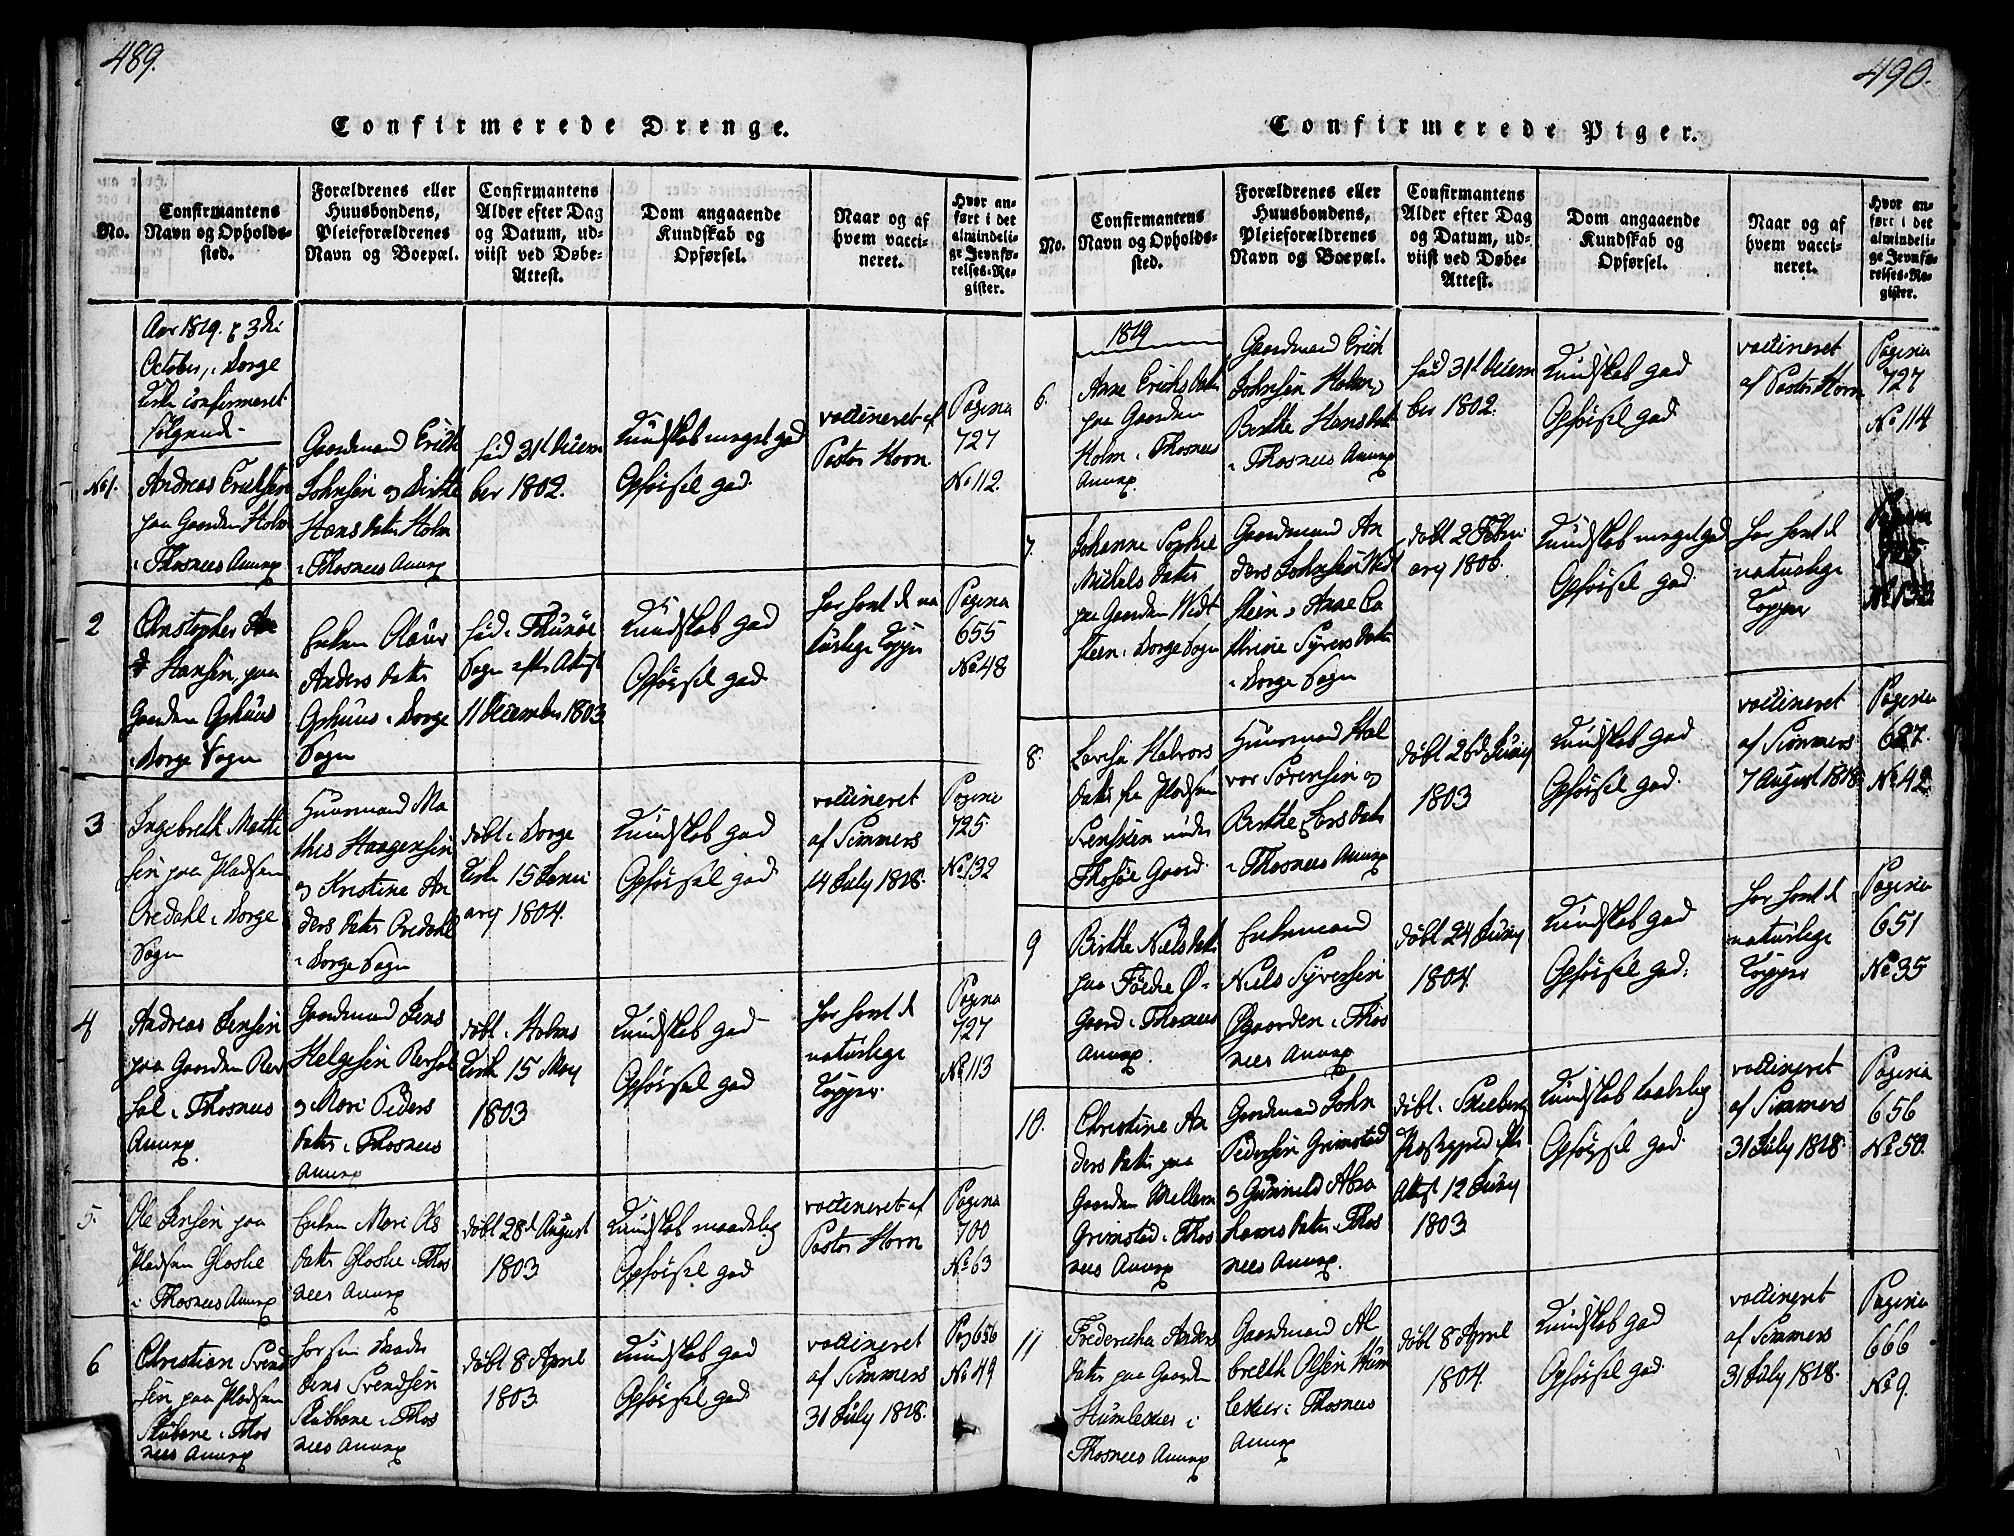 489.
Confirmerede Drenge.
No.
Confirmantens
Navn og Opholds-
sted.
Forældrenes eller
Huusbondens,
Pleieforældrenes
Navn og Boepæl.
Confirmantens
Alder efter Dag
og Datum, ud-
viist ved Døbe-
Attest.
Dom angaaende
Kundskab og
Opførsel.
Naar og af
hvem vacci-
neret.
Hvor an-
ført i det
almindeli-
ge Jevnfø-
relses-Re-
gister.
Aar 1819. 3die
October, i Borge
Kirke confirmeret
følgende
No 1.
Andreas Erichsen
paa Gaarden Holm
i Thosnees Annex
Gaardmand Erich
Johnsen og Birthe
Hans Datter Holm
i Thosnees Annex
fød 31d Decem
ber 1802.
Kundskab meget god
Opførsel god
vaccineret af
Pastor Horn.
Pagina
727
No 112.
2
Christopher
Hansen, paa
Gaarden
i Borge Sogn
Enken
Anders Datter
i Borge
Sogn
fød i Thunøe
Sogn efter Attest
11 December 1803
Kundskab god
Opførsel god
har havt de na
turlige Kopper
Pagina
655
No 48
3
Ingebreth Mathi
sen paa Pladsen
Oredahl i Borge
Sogn
Huusmand Ma
this Haagensen
og Kristine An
ders Datter Oredahl
i Borge Sogn
døbt i Borge
Kirke 15 Janu
ary 1804.
Kundskab god
Opførsel god
vaccineret
af Simmers
14 July 1818.
Pagina
725
No 132
4
Andreas Jensen
paa Gaarden Rer
hol i Thosnees
Annex.
Gaardmand Jens
Helgesen Rerhol
og Mari Peders
Datter i Thosnees
Annex
døbt i Holms
Kirke 15 May
1803
Kundskab god
Opførsel god
har havt de
naturlige
Kopper.
Pagina
727
No 113
5.
Ole Jensen paa
Pladsen Gloshe
i Thosnees Annex
Enken Mari Ols
datter Gloshe i Thos
nees Annex
døbt 28d August
1803
Kundskab maadelig
Opførsel god
vaccineret af
Pastor Horn
Pagina
700
No 63
6
Christian Svend
sen paa Pladsen
Stubbene i Thos
nees Annex
Jens Svendsen
Stubbene i Thos
nees Annex
døbt 8 April
1803.
Kundskab god
Opførsel god
vaccineret
af Simmers
31 July 1818.
Pag 656
No 49
490.
Confirmerede Piger.
No.
Confirmantens
Navn og Opholds-
sted.
Forældrenes eller
Huusbondens,
Pleieforældrenes
Navn og Boepæl.
Confirmantens
Alder efter Dag
og Datum, ud-
viist ved Døbe-
Attest.
Dom angaaende
Kundskab og
Opførsel.
Naar og af
hvem vacci-
neret.
Hvor an-
ført i det
almindeli-
ge Jevnfø-
relses-Re-
gister.
1819
6.
Anne Erichs Datter
paa Gaarden
Holm i Thosnees
Annex.
Gaardmand Erich
Johnsen Holm og
Birthe Hans Datter
i Thosnees Annex
fød 31d Decem
ber 1802.
Kundskab god
Opførsel god
vaccineret
af Pastor Horn
Pagina
727
No 114
7.
Johanne Sophie
Michels Datter
paa Gaarden Vidt
steen i Borge Sogn
Gaardmand An
ders Johnsen Vidt
steen og Anne Ca
thrine Syvers Datter
i Borge Sogn
døbt 2 Febru
ary
Kundskab meget god
Opførsel god
har havt de
naturlige
Kopper
Pagina
725
8.
Lovisa Halvors
Datter fra Pladsen
under
Thosøe Gaard
Huusmand Hal
vor Sørensen og
Birthe Lars Datter
i Thosnees Annex
døbt 26d Juny
1803
Kundskab god
Opførsel god.
vaccineret
af Simmers
7 August 1818.
Pagina
627.
No 42.
9
Birthe Niels Datter
paa Ø-
Gaard i Thosnees
Annex.
Enkemand
Niels Syversen
Øgaarden i Thos
nees Annex
døbt 24 Juny
1804.
Kundskab god
Opførsel god.
har havt de
naturlige
Kopper
Pagina
651
No 35
10.
Christine An
ders Datter paa
Gaarden Mellem
Grimstad i Thos
nees Annex
Gaardmand John
Pedersen Grimstad
og Gunnild Abra
hams Datter i Thos
nees Annex.
døbt i Skieberg
Præstegjeld efter
Attest 12 Juny
1803.
Kundskab taalelig
Opførsel god.
vaccineret
af Simmers
31 July 1818.
Pagina
656
No 50.
11
Fridericha Anders
Datter paa Gaarden
Humlekier i
Thosnees Annex
Gaardmand Al
breth Olsen Hum
lekier i Thosnees
Annex
døbt 8 April
1804.
Kundskab god
Opførsel god.
vaccineret
af Simmers
31 July 1818.
Pagina
666
No 9.